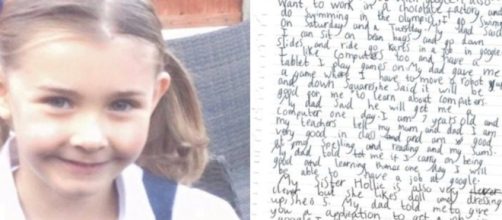 want to work in a chocolate factory and
do swimming in the olympics I go swimming
on Saturday and a Tuesday My dad said
I can sit on bean bags and go down
slides and ride go karts in a job in google
I like computers too and have a
tablet I play games on My dad gave me
a game where I have to move a robot
and down squares he said it will be
good for me to learn about computers
My dad said he will get me a
computer one day I am 7 years old and
my teachers tell my mum and dad I am
very good in class and am good
at my spelling and reading and my
dad told me if I carry on being
good and learning one day I will
be able to have a job at google
My sister Hollie is also very
she likes dolls and dressing
up she is 5. My dad told me to give
you a application to get a